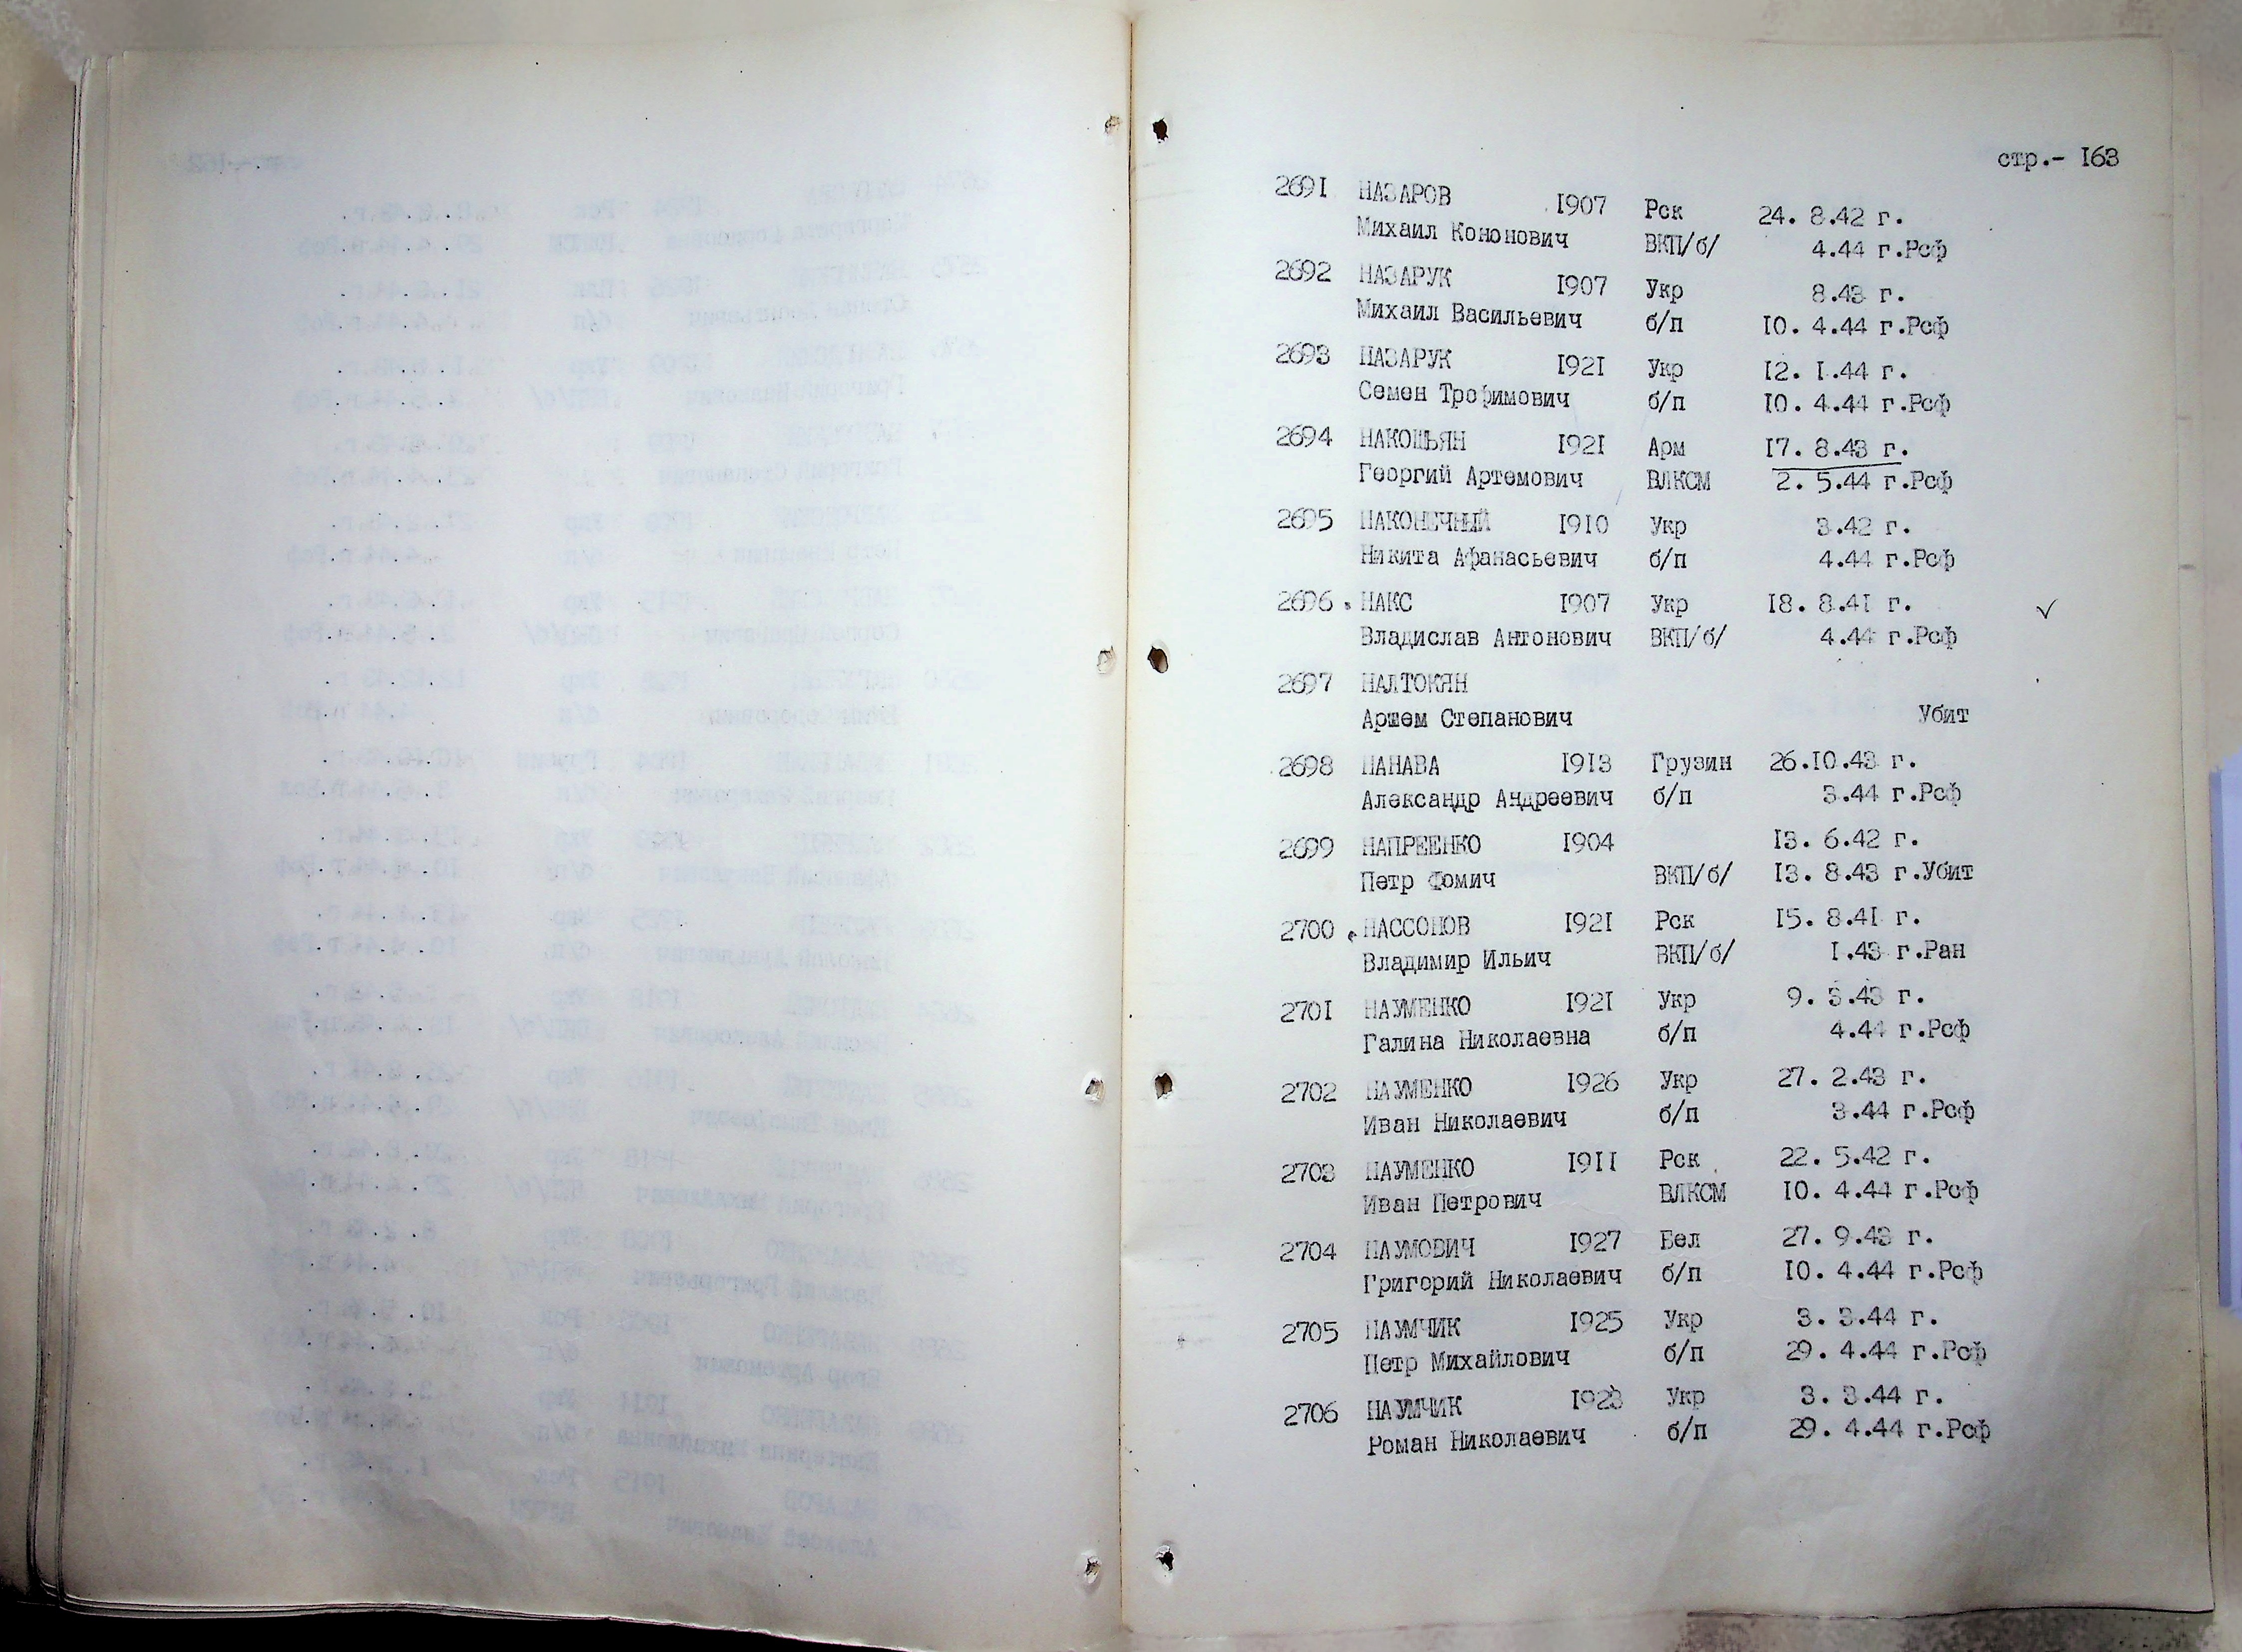 стр.- 163
2691 НАЗАРОВ 1907 Рск 24. 8.42 г.
Михаил Кононович ВКП/б/ 4.44 г.Рсф
2692 НАЗАРУК 1907 Укр 8.43 г.
Михаил Васильевич б/п 10. 4.44 г.Рсф
2693 НАЗАРУК 1921 Укр 12. 1.44 г.
Семен Трофимович б/п 10. 4.44 г.Рсф
2694 НАКОШЬЯН 1921 Арм 17. 8.43 г.
Георгий Артемович ВЛКСМ 2. 5.44 г.Рсф
2695 НАКОНЕЧНЫЙ 1910 Укр 3.42 г.
Никита Афанасьевич б/п 4.44 г.Рсф
2696 НАКС 1907 Укр 18. 8.41 г. ✓
Владислав Антонович ВКП/б/ 4.44 г.Рсф
2697 НАЛТОКЯН
Аршем Степанович Убит
2698 НАНАВА 1913 Грузин 26.10.43 г.
Александр Андреевич б/п 3.44 г.Рсф
2699 НАПРЕЕНКО 1904 13. 6.42 г.
Петр Фомич ВКП/б/ 13. 8.43 г.Убит
2700 НАССОНОВ 1921 Рск 15. 8.41 г.
Владимир Ильич ВКП/б/ 1.43 г.Ран
2701 НАУМЕНКО 1921 Укр 9. 5.43 г.
Галина Николаевна б/п 4.44 г.Рсф
2702 НАУМЕНКО 1926 Укр 27. 2.43 г.
Иван Николаевич б/п 3.44 г.Рсф
2703 НАУМЕНКО 1911 Рск 22. 5.42 г.
Иван Петрович ВЛКСМ 10. 4.44 г.Рсф
2704 НАУМОВИЧ 1927 Бел 27. 9.43 г.
Григорий Николаевич б/п 10. 4.44 г.Рсф
2705 НАУМЧИК 1925 Укр 3. 3.44 г.
Петр Михайлович б/п 29. 4.44 г.Рсф
2706 НАУМЧИК 1923 Укр 3. 3.44 г.
Роман Николаевич б/п 29. 4.44 г.Рсф